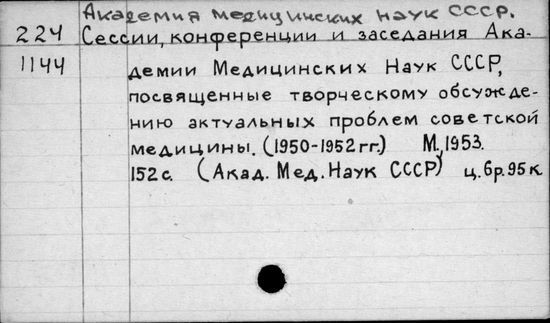 Академия медицинских наук СССР.
224 Сессии, конференции и заседания Ака-
1144 демии Медицинских Наук СССР,
посвященные творческому обсужде-
нию актуальных проблем советской
медицины. (1950-1952гг.) М., 1953.
152 с. (Акад. Мед. Наук СССР) ц. бр. 95 к.